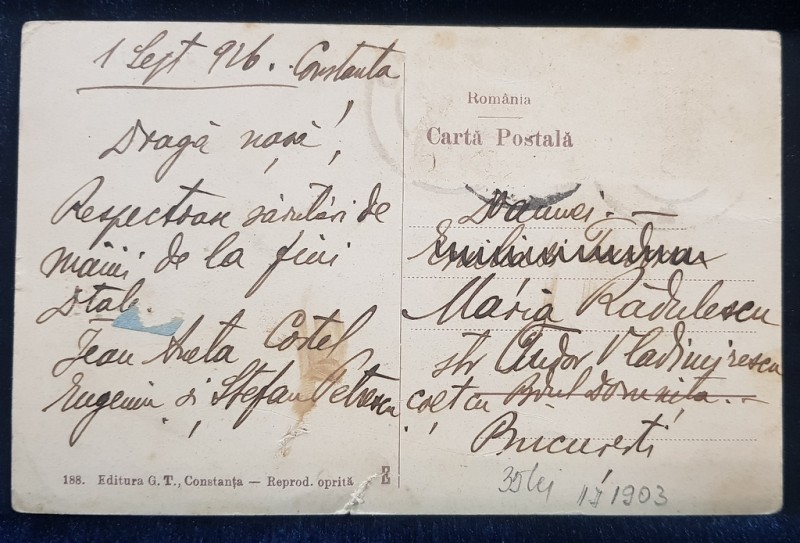 1 Sept 926. Constanta
Dragă nașă!,
Respectoase sărutări de
mâini de la fini
Dtale.
Jean Aneta Costel
Eugeniu și Ștefan Petrescu
188. Editura G. T., Constanța — Reprod. oprită
România
Cartă Postală
Doamnei. —
Maria Rădulescu
str Tudor Vladimirescu
colț cu Bdul Domnița..
București
35 lei
1903